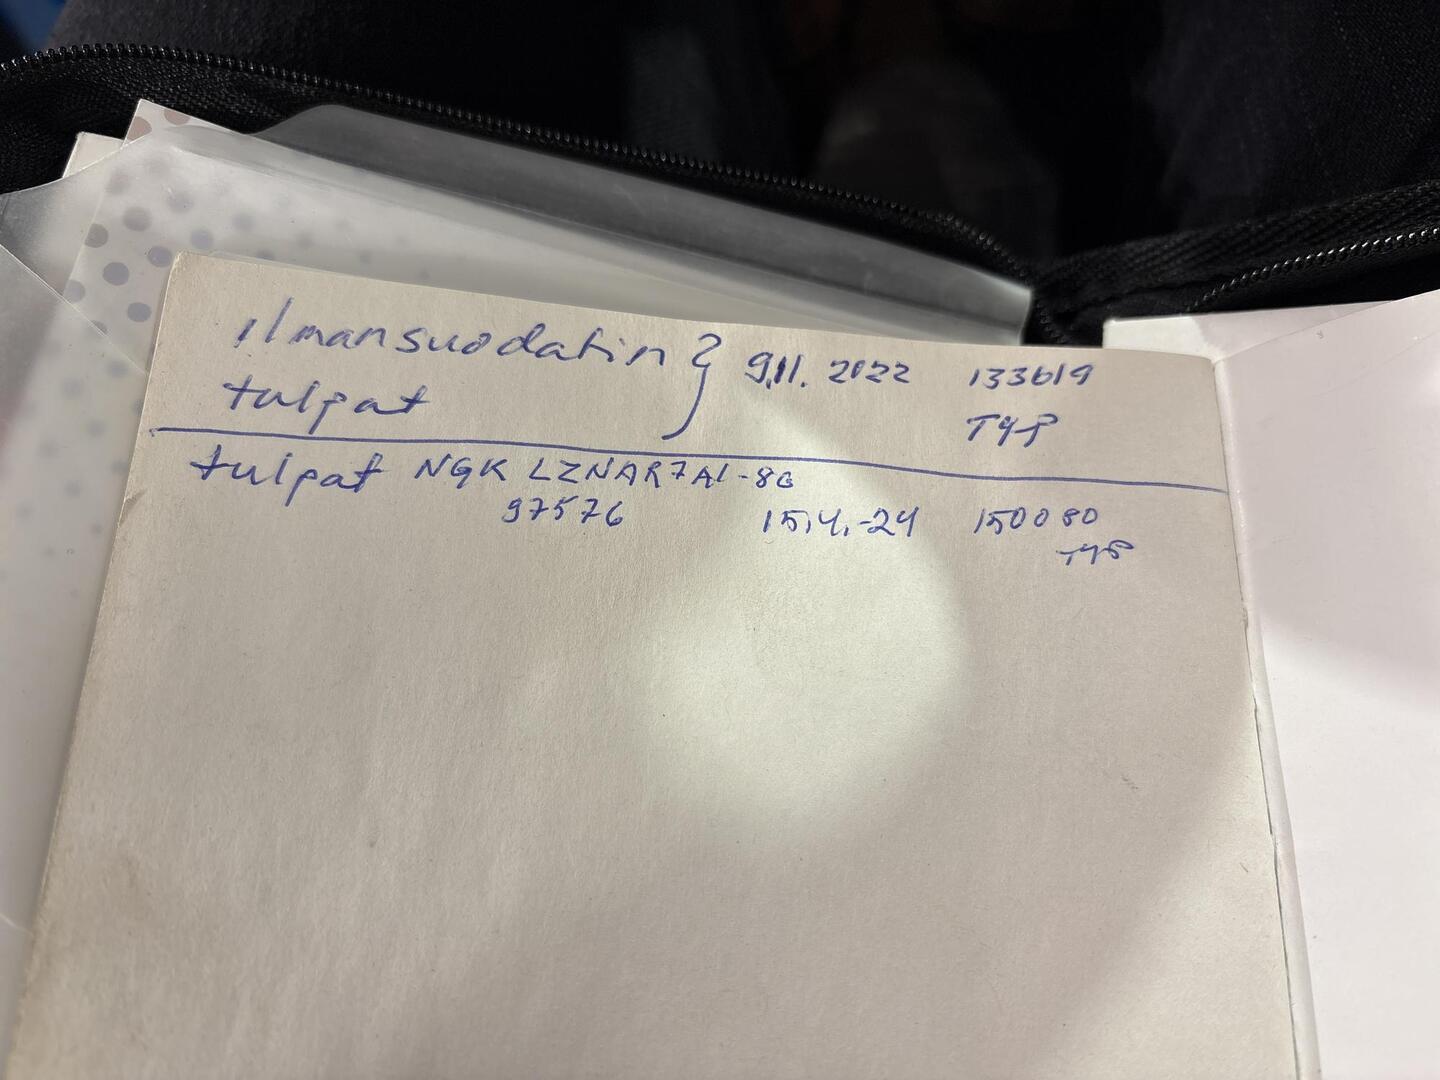 ilmansuodatin } 9.11. 2022 133619
tulpat TYP
tulpat NGK LZNAR7AI-8G
97576 15.4.-24 150080
TYP